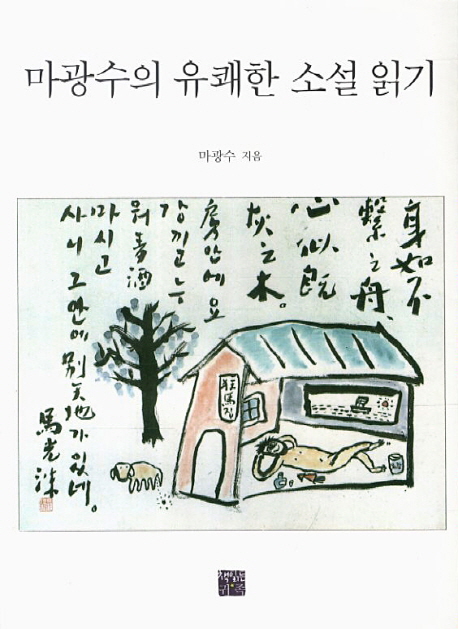 마광수의 유쾌한 소설 읽기
마광수 지음
身如不
繫之舟、
心似旣
灰之木。
房안에 요
강 끼고 누
워 音酒
마시고
사니 그 안에 別天地가 있네。
馬光洙
狂馬집
책읽는
귀족